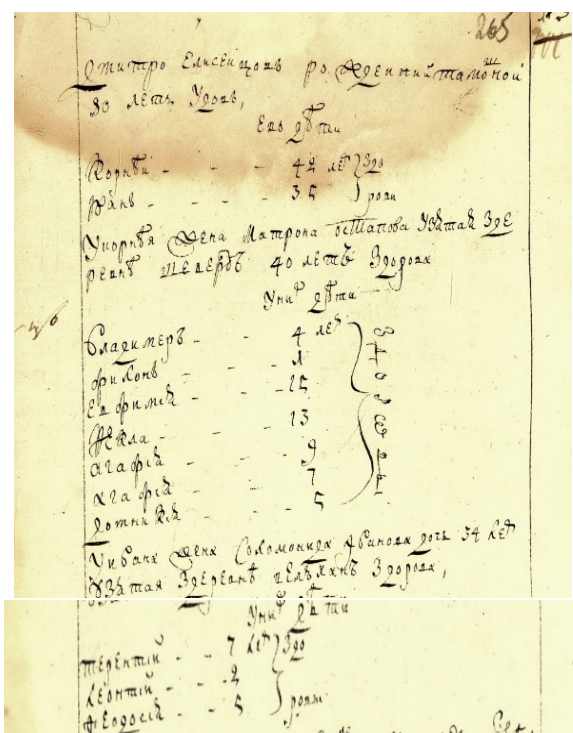 265
Дмитро Елисеицовъ рожденний тамошной
80 летъ Удовъ,
Евъ дѣти
Корнѣй - - - 42 ле Здо
Иванъ - - - 35 рови
Укорнѣя Жена Матрона осташова Узятая Зде
ревнѣ 40 летъ Здорова
Уних дѣти
Владимеръ - - 4 лет
филонъ - - - 1
Ефимия - - 15 Здоровы
Фекла - - - 13
агафия - - - 9
агафия - - - 7
- - - 5
Уивана Жена Соломонида Иванова дочь 34 лет
Узятая Здеревнѣ Здорова,
Уних дѣти
терентий - - 7 лет Здо
леонтий - - 2
Феодосия - - 5 рови